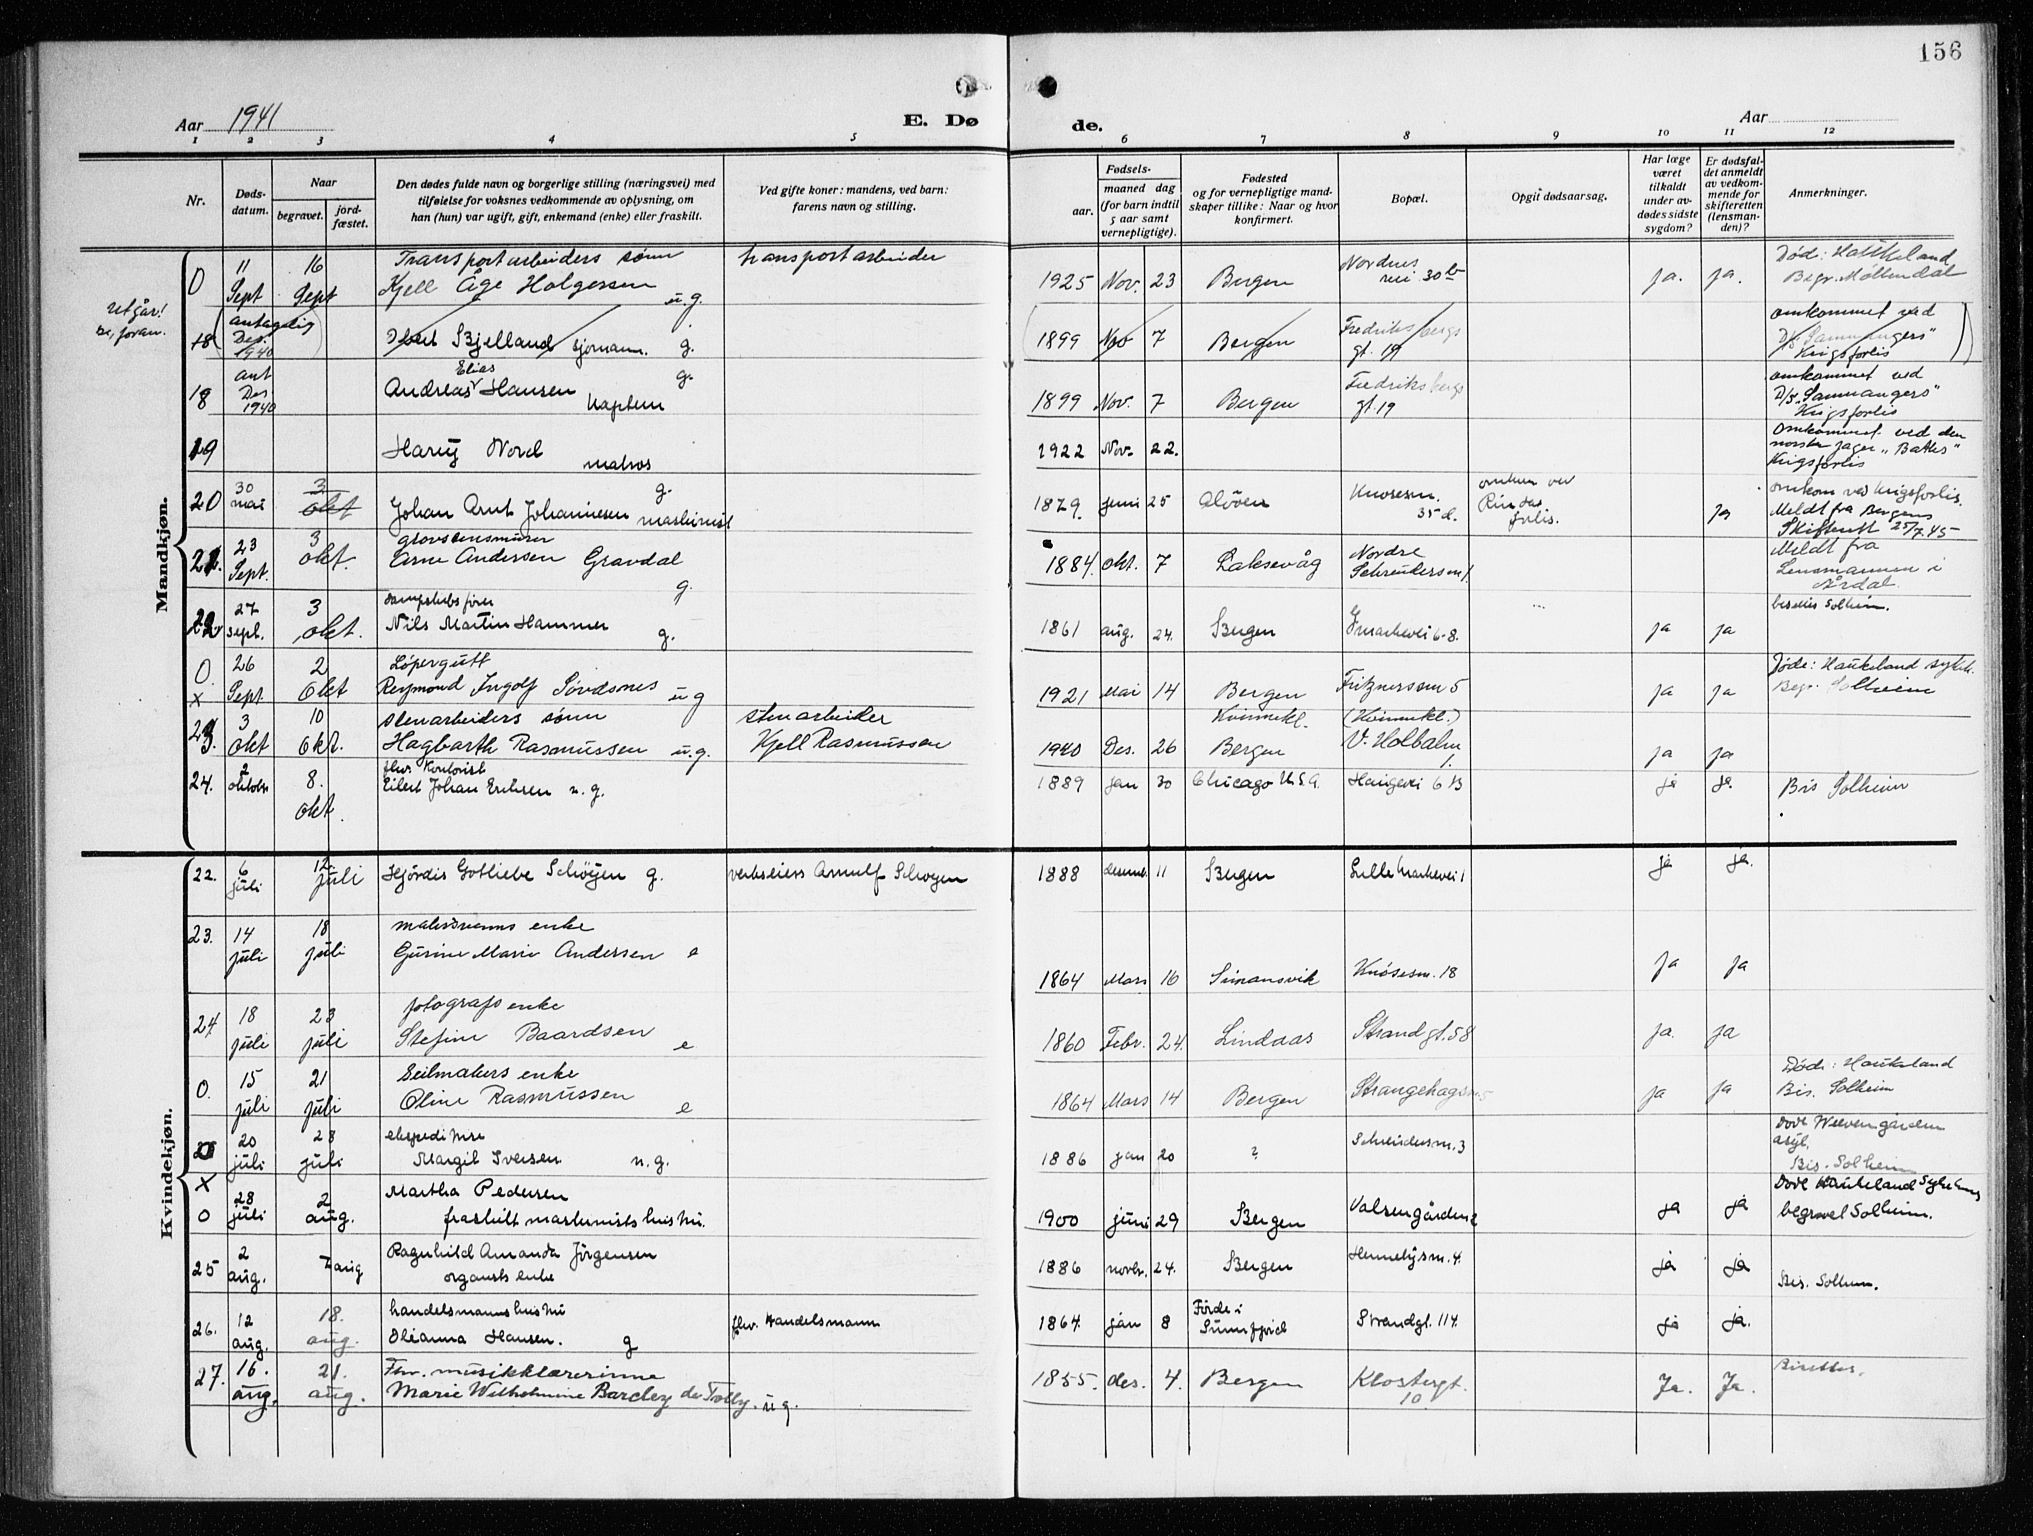 156
Aar 1941
E. Dø
de.
Aar
1 2 3 4 5 6 7 8 9 10 11 12
Nr.
Døds-
datum.
Naar
begravet.
jord-
fæstet.
Den dødes fulde navn og borgerlige stilling (næringsvei) med
tilføielse for voksnes vedkommende av oplysning, om
han (hun) var ugift, gift, enkemand (enke) eller fraskilt.
Ved gifte koner: mandens, ved barn:
farens navn og stilling.
Fødsels-
aar.
maaned dag
(for barn indtil
5 aar samt
vernepligtige).
Fødested
og for vernepligtige mand-
skaper tillike: Naar og hvor
konfirmert.
Bopæl.
Opgit dødsaarsag.
Har læge
været
tilkaldt
under av-
dødes sidste
sygdom?
Er dødsfal-
det anmeldt
av vedkom-
mende for
skifteretten
(lensman-
den)?
Anmerkninger.
Mandkjøn.
11 16 Transportarbeiders sønn transportarbeider Nordnes Død: Haukeland
0 Sept Sept Kjell Åge Holgersen u.g. 1925 Nov. 23 Bergen vei 30b ja. ja. Begr. Møllendal
utgår!
antagelig omkommet ved
18 Des. Bjelland sjømann. g. 1899 Nov 7 Bergen Fredriksbergs D/S "Sammangers"
1940 gt. 19 Krigsforlis
ant Elias g. Fredriksbergs omkommet ved
18 Des Andreas Hansen 1899 Nov. 7 Bergen gt. 19 D/S "Sammangers"
1940 Kaptein Krigsforlis
19 Harry Nord 1922 Nov. 22. omkommet ved den
matros norske jager "Baths"
Krigsforlis
30 3 g. omkom ved omkom ved krigsforlis.
20 mai okt Johan Arnt Johannesen maskinist 1879. juni 25 Alvøen Knøsesm. 35 d. Rindas forlis. ja Meldt fra Bergens
Skifterett 25/7.45
23 3 grovstensmurer Nordre Meldt fra
21. Sept. okt. Arne Andersen Gravdal g. 1884. okt. 7 Laksevåg Schreudersm. Lensmannen i
Årdal.
27 3 dampskibsfører bisettes Solheim.
22 sept. okt. Nils Martin Hammer g. 1861 aug. 24. Bergen markevei 6-8. ja ja
0. 26 2 Løpergutt Døde: Haukeland sykeh.
x Sept Okt Reymond Ingolf Søvdsnes u g 1921 Mai 14 Bergen Fritznersm 5 ja ja Begr. Solheim
3 10 stenarbeiders sønn stenarbeider Kvinnekl. (Kvinnekl.)
23. okt okt. Hagbarth Rasmussen u.g. Kjell Rasmussen 1940 Des. 26 Bergen V. Holbalm ja ja
2 fhv. Kontorist
24. oktober 8. okt. Eilert Johan Eriksen u. g. 1889 jan 30 Chicago U.S.A. Haugevei 6 B ja ja. Bis Solheim
Kvindekjøn.
22. 6 juli 12 juli Hjørdis Gotliebe Schøyen g. verkseiers Arnulf Schøyen 1888 desemb. 11 Bergen Lille Markevei 1 ja ja.
malersvenns enke
23. 14 juli 18 juli Gurine Marie Andersen e 1864 Mars 16 Simansvik Knøsesm. 18 ja ja
fotografs enke
24 18 juli 23 juli Stefine Baardsen e 1860 Febr. 24. Lindaas Strandgt. 58 ja. ja
Seilmakers enke Døde: Haukeland
0. 15 juli 21 juli Oline Rasmussen e 1864 Mars 14 Bergen Strangehagen 5 ja ja Bis. Solheim
20 28 ekspeditrise Døde Wernergårdens
juli juli Margit Iversen u.g. 1886 jan 20 ? Schreudersm. 3 asyl.
x Bis. Solheim
28 2 Martha Pedersen Døde Haukeland Sykehus
0 juli aug. fraskilt maskinists hustru. 1900 juni 29 Bergen Valsengården 2 ja ja begravet Solheim.
2 Ragnhild Amanda Jørgensen
25 aug. 7 aug organists enke 1886 novbr. 24. Bergen Hennebysm. 4. ja ja Bis. Solheim.
handelsmanns hustru
26. 12 aug. 18. aug. Elianna Hansen. g fhv. Handelsmann 1864. jan 8 Førde i Sunnfjord Strandgt. 114. ja ja.
Fhv. musikklærerinne
27. 16. aug. 21. aug. Marie Wilhelmine Barcley de Tolly. u g. 1855. des. 4. Bergen Klostergt. 10. Ja. Ja. Bisettes.